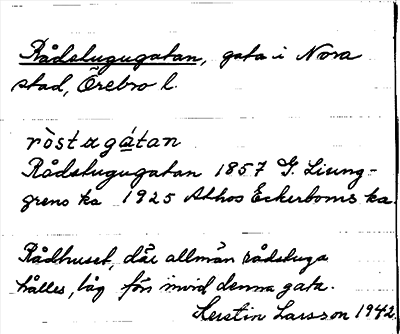 Rådstugugatan, gata i Nora
stad, Örebro l.
ròstagátan
Rådstugugatan 1857 G. Ljung-
grens ka 1925 Athos Eckerboms ka.
Rådhuset, där allmän rådstuga
hålles, låg förr invid denna gata.
Kerstin Larsson 1942.